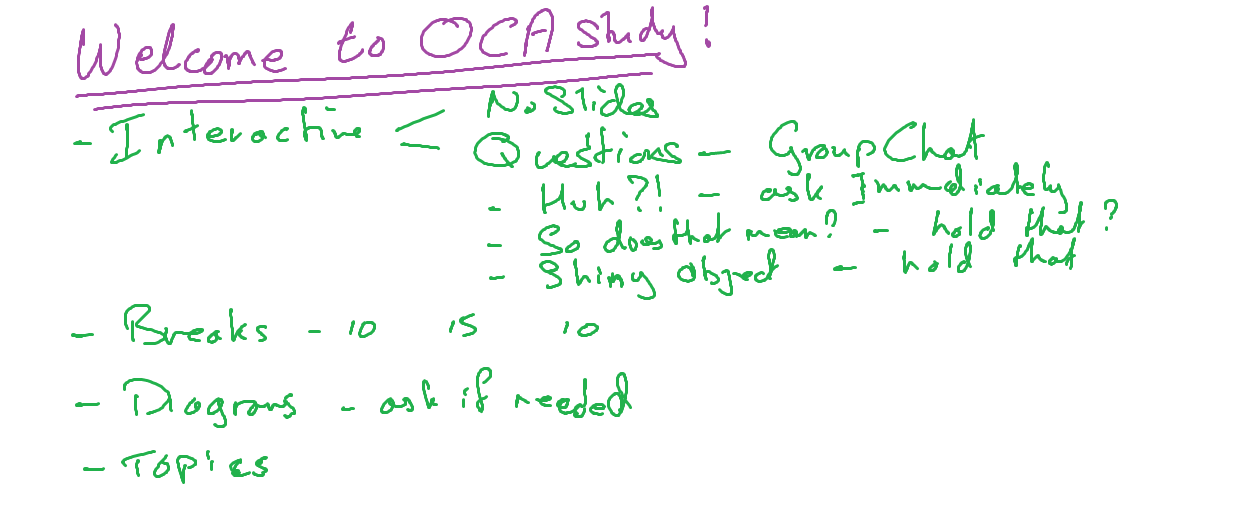 Welcome to OCA study!
- Interactive < No Slides
Questions - Group Chat
- Huh?! - ask Immediately
- So does that mean? - hold that?
- Shiny Object - hold that
- Breaks - 10 15 10
- Diagrams - ask if needed
- Topics